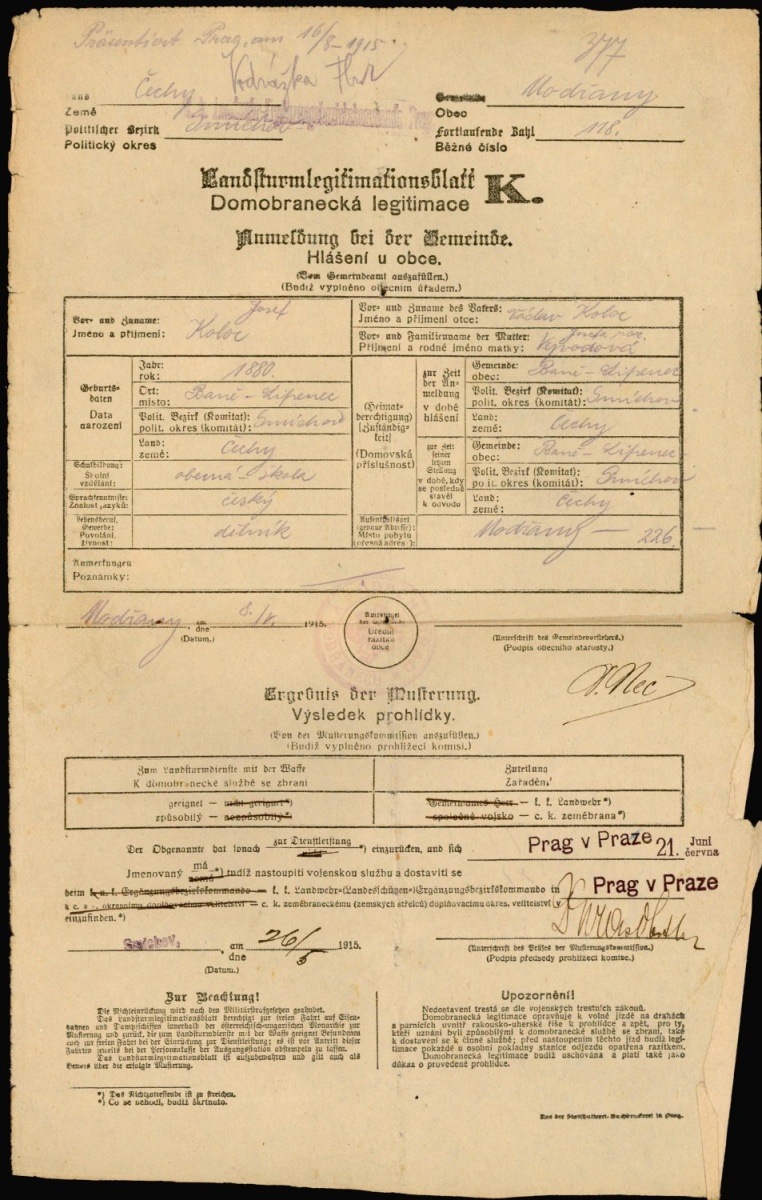 Präsentiert Prag, am 16/8 1915.
377
Čechy Vodrážka
Země
Modřany
Obec
Politischer Bezirk
Politický okres
Smíchov
Fortlaufende Zahl
Běžné číslo
118.
Landsturmlegitimationsblatt K.
Domobranecká legitimace
Anmeldung bei der Gemeinde.
Hlášení u obce.
(Vom Gemeindeamt auszufüllen.)
(Budiž vyplněno obecním úřadem.)
Vor- und Zuname:
Jméno a příjmení:
Josef
Kolbe
Vor- und Zuname des Vaters:
Jméno a příjmení otce:
Václav Kolbe
Vor- und Familienname der Mutter:
Příjmení a rodné jméno matky:
Josefa
Geburts-
daten
Data
narození
Jahr:
rok:
1880.
Ort:
místo:
Baně-Lipenec
Polit. Bezirk (Komitat):
polit. okres (komitát):
Smíchov
Land:
země:
Čechy
(Heimat-
berechtigung)
(Zuständig-
keit)
(Domovská
příslušnost)
zur Zeit
der An-
meldung
v době
hlášení
Gemeinde:
obec:
Baně-Lipenec
Polit. Bezirk (Komitat):
polit. okres (komitát):
Smíchov
Land:
země:
Čechy
zur Zeit
seiner
letzten
Stellung
v době, kdy
se posledně
stavěl
k odvodu
Gemeinde:
obec:
Baně-Lipenec
Polit. Bezirk (Komitat):
polit. okres (komitát):
Smíchov
Land:
země:
Čechy
Schulbildung:
Školní
vzdělání:
obecná škola
Sprachkenntnisse:
Znalost jazyků:
český
Lebensberuf,
Gewerbe:
Povolání,
živnost:
dělník
Aufenthaltsort
(genaue Adresse):
Místo pobytu
(přesná adresa):
Modřany — 226 —
Anmerkungen
Poznámky:
Modřany am
dne 8./V. 1915.
(Datum.)
Amtssiegel
der Gemeinde
Úřední
razítko
obce
(Unterschrift des Gemeindevorstehers.)
(Podpis obecního starosty.)
Ergebnis der Musterung.
Výsledek prohlídky.
(Von der Musterungskommission auszufüllen.)
(Budiž vyplněno prohlížecí komisí.)
Zum Landsturmdienste mit der Waffe
K domobranecké službě se zbraní
Zuteilung
Zařadění
geeignet — nicht geeignet*)
způsobilý — nezpůsobilý*)
Gemeinsames Heer — k. k. Landwehr*)
společné vojsko — c. k. zeměbrana*)
Der Obgenannte hat sonach zur Dienstleistung
nicht *) einzurücken, und sich
Prag v Praze 21. Juni
června
Jmenovaný má
nemá *) tudíž nastoupiti vojenskou službu a dostaviti se
beim k. u. k. Ergänzungsbezirkskommando — k. k. Landwehr-(Landesschützen-)Ergänzungsbezirkskommando in Prag v Praze
k c. a k. okresnímu doplňovacímu velitelství — c. k. zeměbraneckému (zemských střelců) doplňovacímu okres. velitelství v
einzufinden.*)
Smíchov, am
dne 26/5 1915.
(Datum.)
(Unterschrift des Präses der Musterungskommission.)
(Podpis předsedy prohlížecí komise.)
Zur Beachtung!
Die Nichteinrückung wird nach den Militärstrafgesetzen geahndet.
Das Landsturmlegitimationsblatt berechtigt zur freien Fahrt auf Eisen-
bahnen und Dampfschiffen innerhalb der österreichisch-ungarischen Monarchie zur
Musterung und zurück, die zum Landsturmdienste mit der Waffe geeignet Befundenen
auch zur freien Fahrt bei der Einrückung zur Dienstleistung; es ist vor Antritt dieser
Fahrten jeweils bei der Personenkasse der Ausgangsstation abstempeln zu lassen.
Das Landsturmlegitimationsblatt ist aufzubewahren und gilt auch als
Beweis über die erfolgte Musterung.
Upozornění!
Nedostavení trestá se dle vojenských trestních zákonů.
Domobranecká legitimace opravňuje k volné jízdě na drahách
a parnících uvnitř rakousko-uherské říše k prohlídce a zpět, pro ty,
kteří uznáni byli způsobilými k domobranecké službě se zbraní, také
k dostavení se k činné službě; před nastoupením těchto jízd budiž legi-
timace pokaždé u osobní pokladny stanice odjezdu opatřena razítkem.
Domobranecká legitimace budiž uschována a platí také jako
důkaz o provedené prohlídce.
*) Das Nichtzutreffende ist zu streichen.
*) Co se nehodí, budiž škrtnuto.
Aus der Statthalterei-Buchdruckerei in Prag.